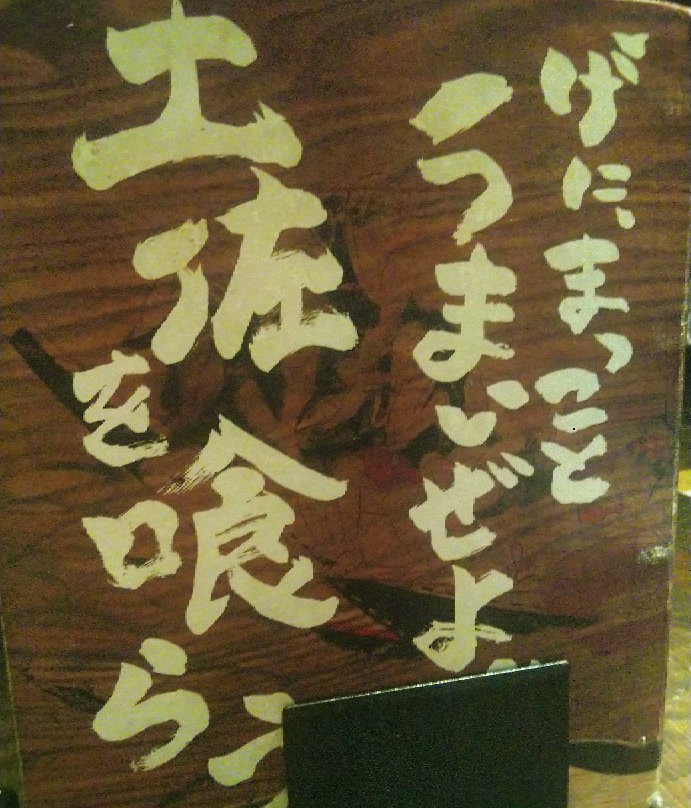 げに、まっこと
うまいぜよ
土佐を喰ら